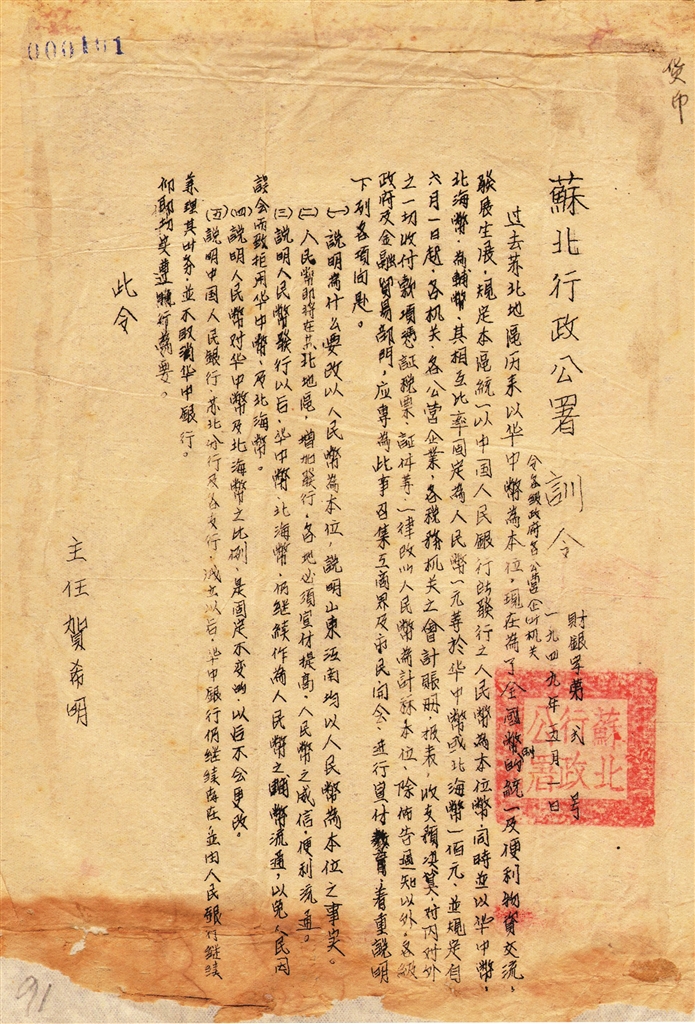 000101
货币
蘇北行政公署 訓令
財銀字第弍号
一九四九年五月一日
令各級政府各公营企业机关
过去苏北地區历来以华中幣為本位，現在為了全國幣制的統一及便利物資交流，
發展生産，規定本區統一以中国人民銀行所發行之人民幣為本位幣同時並以华中幣，
北海幣，為輔幣，其相互比率固定為人民幣一元等於华中幣或北海幣一佰元，並規定自
六月一日起，各机关，各公营企業，各税務机关之會計賬册，报表，收支預决算，对内对外
之一切收付款項憑証税票，証件等一律改以人民幣為計祘本位，除佈告通知以外，各級
政府及金融貿易部門，应專為此事召集工商界及市民開会，進行宣付教育，着重說明
下列各項问题。
㈠說明為什么要改以人民幣為本位，說明山東江南均以人民幣為本位之事实。
㈡人民幣即將在苏北地區，增加發行，各地必須宣付提高，人民幣之威信，便利流通。
㈢說明人民幣發行以后，华中幣，北海幣，仍继續作為人民幣之輔幣流通，以免人民因
誤会而致拒用华中幣，及北海幣。
㈣說明人民幣对华中幣及北海幣之比例，是固定不变的，以后不会更改。
㈤說明中国人民銀行，苏北分行及各支行，成立以后，华中銀行仍继續存在，並由人民銀行継续
兼理其业务，並不取消华中銀行。
仰即切实遵照行為要。
此令
主任 賀希明
蘇北行政公署
91